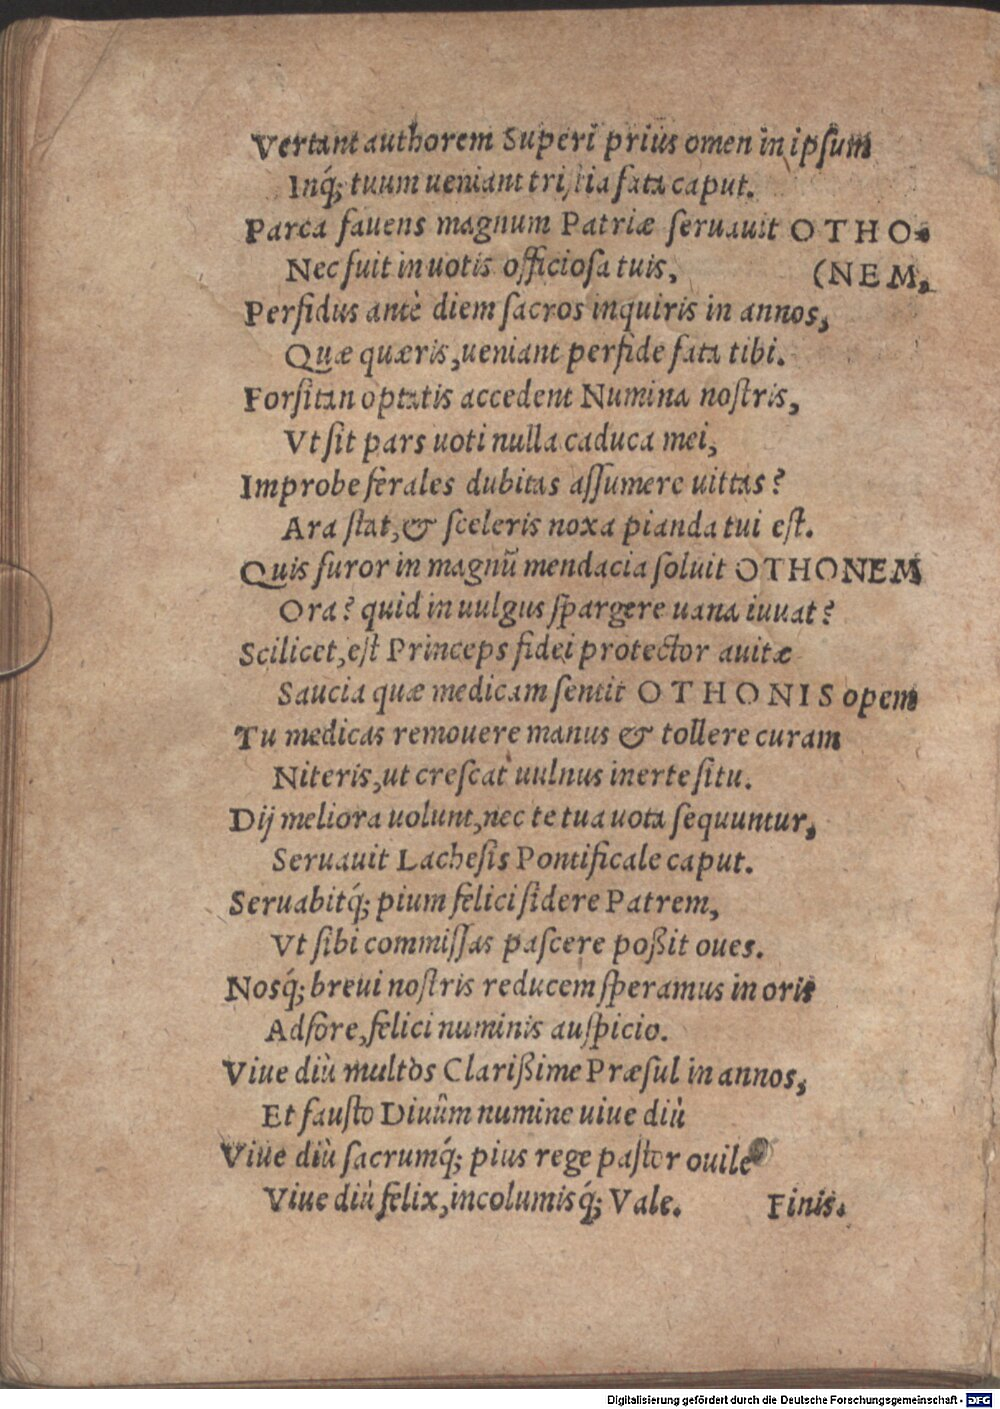 Vertant authorem Superi prius omen in ipsum
Inq́; tuum ueniant tristia fata caput.
Parca fauens magnum Patriæ seruauit OTHO-
Nec fuit in uotis officiosa tuis, (NEM,
Perfidus antè diem sacros inquiris in annos,
Quæ quæris, ueniant perfide fata tibi.
Forsitan optatis accedent Numina nostris,
Vt sit pars uoti nulla caduca mei,
Improbe ferales dubitas assumere uittas?
Ara stat, & sceleris noxa pianda tui est.
Quis furor in magnũ mendacia soluit OTHONEM
Ora? quid in uulgus spargere uana iuuat?
Scilicet, est Princeps fidei protector auitæ
Saucia quæ medicam sentit OTHONIS opem
Tu medicas remouere manus & tollere curam
Niteris, ut crescat uulnus inerte situ.
Dij meliora uolunt, nec te tua uota sequuntur,
Seruauit Lachesis Pontificale caput.
Seruabitq́; pium felici sidere Patrem,
Vt sibi commissas pascere poßit oues.
Nosq́; breui nostris reducem speramus in oris
Adfore, felici numinis auspicio.
Viue diù multos Clarißime Præsul in annos,
Et fausto Diuûm numine uiue diù
Viue diù sacrumq́; pius rege pastor ouile
Viue diù felix, incolumisq́; Vale. Finis.
Digitalisierung gefördert durch die Deutsche Forschungsgemeinschaft - DFG